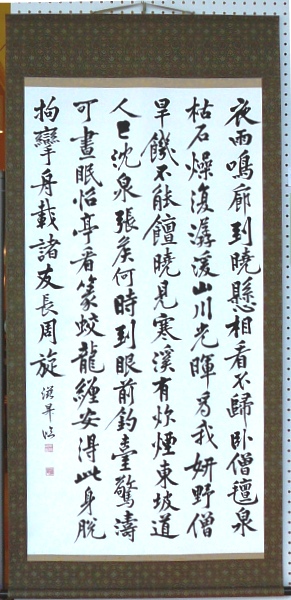 夜雨鳴廊到曉懸相看不歸臥僧氈泉
枯石燥復潺湲山川光暉為我妍野僧
旱饑不能饘曉見寒溪有炊煙東坡道
人已沈泉張侯何時到眼前釣臺驚濤
可晝眠怡亭看篆蛟龍纏安得此身脫
拘攣舟載諸友長周旋 臨